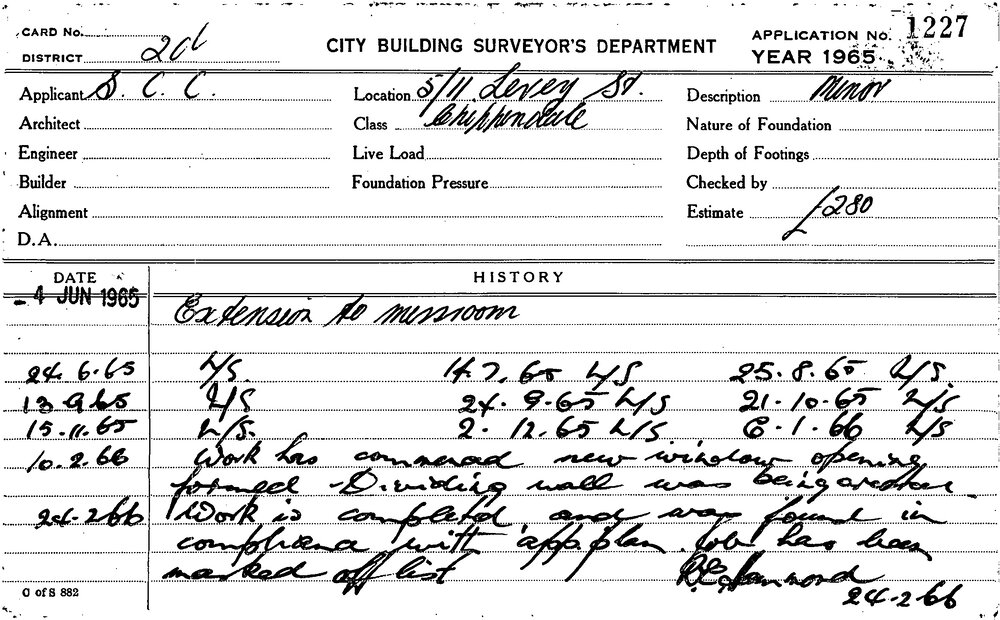 CARD No.
DISTRICT 2d
CITY BUILDING SURVEYOR'S DEPARTMENT
APPLICATION No. 1227
YEAR 1965
Applicant S. C. C.
Location 5/11 Levey St.
Description Minor
Architect
Class Chippendale
Nature of Foundation
Engineer
Live Load
Depth of Footings
Builder
Foundation Pressure
Checked by
Alignment
Estimate £280
D.A.
DATE
HISTORY
- 4 JUN 1965
Extension to messroom
24.6.65 N/S. 14.7.65 N/S 25.8.65 N/S.
13.9.65 N/S 24.9.65 N/S 21.10.65 N/S
15.11.65 N/S. 2.12.65 N/S 6.1.66 N/S
10.2.66 Work has commenced new window opening
formed - Dividing wall was being erected
24.2.66 Work is completed and was found in
compliance with app. plan. Job has been
marked off list
24.2.66
C of S 882